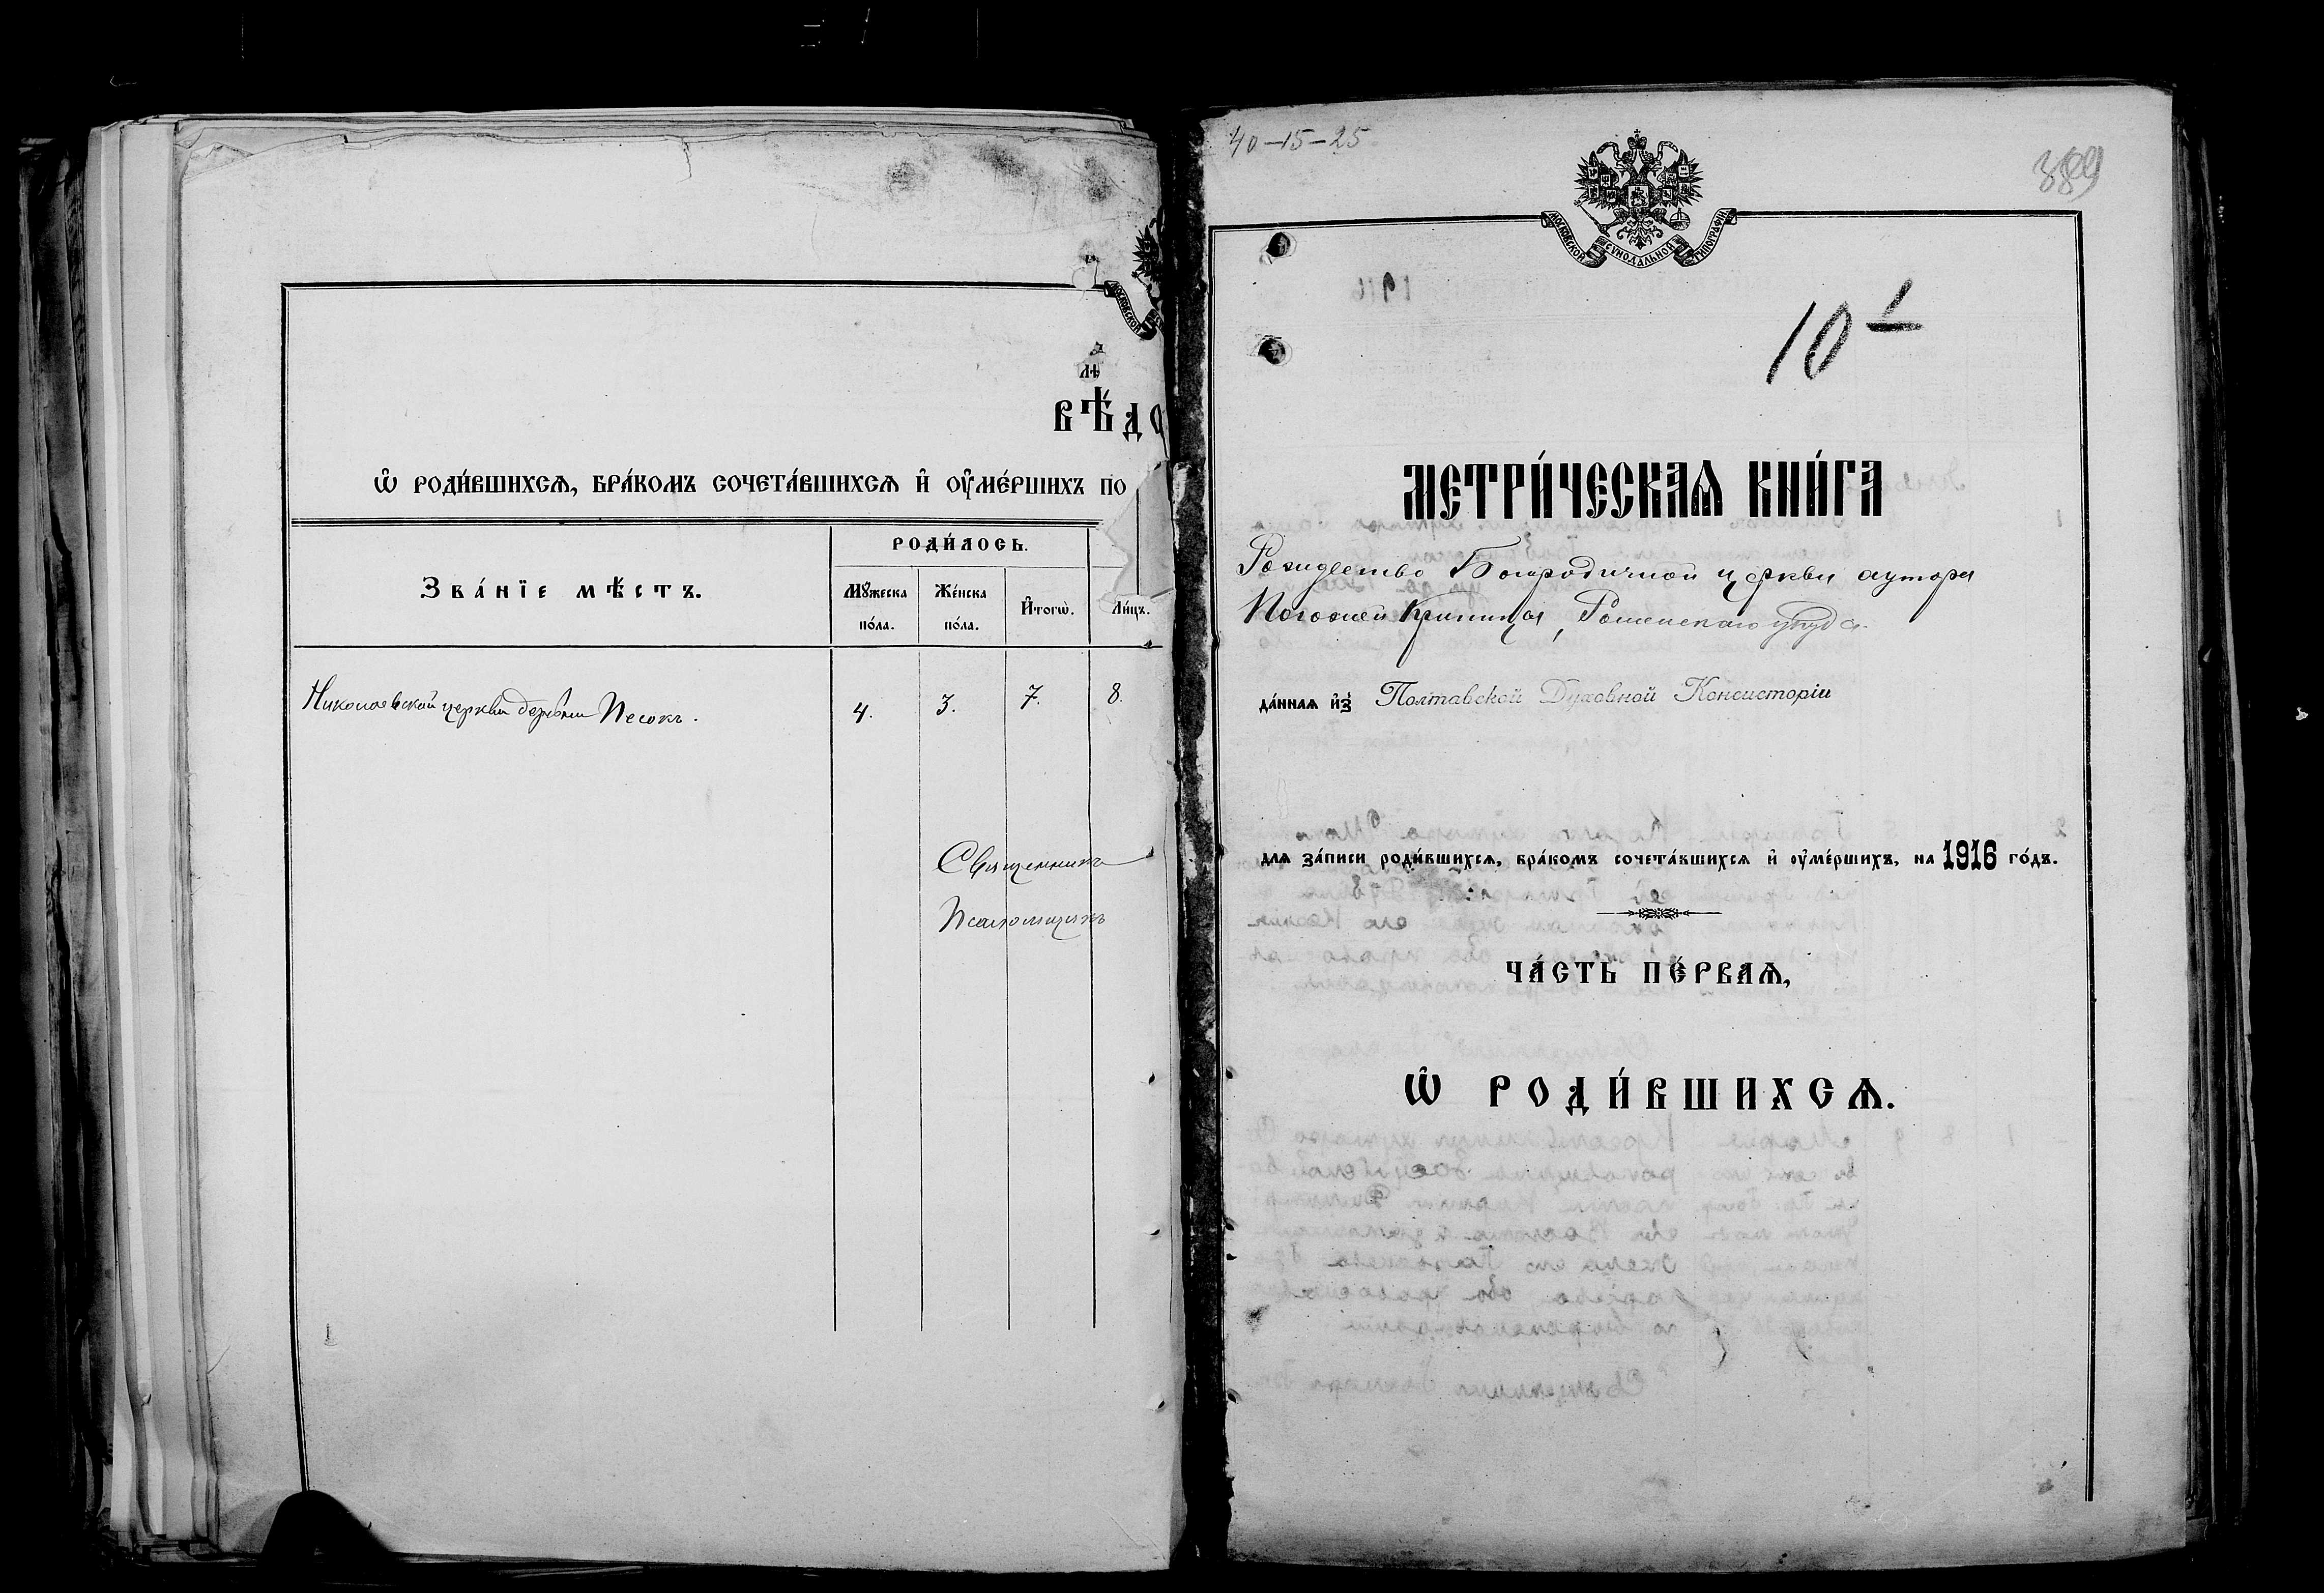 лѣ
ВѢДО
Ѡ РОДИ́ВШИХСѦ, БРА́КОМЪ СОЧЕТА́ВШИХСѦ И҆ ОУ҆МЕ́РШИХЪ ПО
ЗВА́НЇЕ МѢ́СТЪ.
РОДИ́ЛОСЬ.
Мꙋ́жеска по́ла.
Же́нска по́ла.
И҆тогѡ̀.
Ли́цъ.
Николаевской церкви деревни Песокъ.
4.
3.
7.
8.
Священникъ
Псаломщикъ
40-15-25
389
МОСКОВСКОЙ СѴНОДАЛЬНОЙ ТИПОГРАФІИ
10
МЕТРИ́ЧЕСКАѦ КНИ́ГА
Рождество Богородичной церкви хутора
Погожей Криницы, Роменскаго уѣзда
да́ннаѧ и҆з̾ Полтавской Духовной Консисторіи
длѧ за́писи роди́вшихсѧ, бра́комъ сочета́вшихсѧ и҆ оу҆ме́ршихъ, на 1916 го́дъ.
ЧА́СТЬ ПЕ́РВАѦ,
Ѡ РОДИ́ВШИХСѦ.